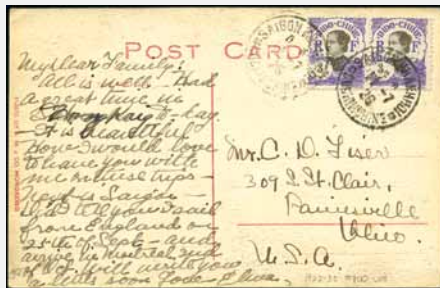 POST CARD
INDO-CHINE
INDO-CHINE
R F
R F
My Dear Family:
All is well. Had
a great time in
to-day.
It is beautiful
How I would love
to have you with
me on these trips -
Next is Saigon -
Did I tell you I sail
from England on
25th of Sept - and
arrive in Montreal 2nd
of Oct. Will write you
a letter soon Love -
Mr. C. D. Tiser
309 S. St. Clair,
Painesville
Ohio.
U.S.A.